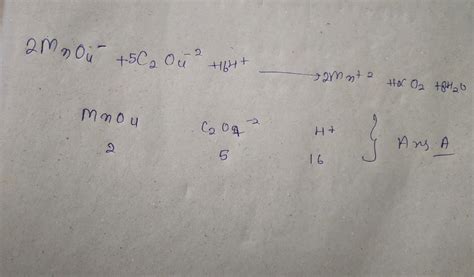 2MnO4⁻ + 5C2O4⁻² + 16H⁺ → 2Mn⁺² + 10CO2 + 8H2O
MnO4 C2O4⁻² H+
2 5 16 } Ans A